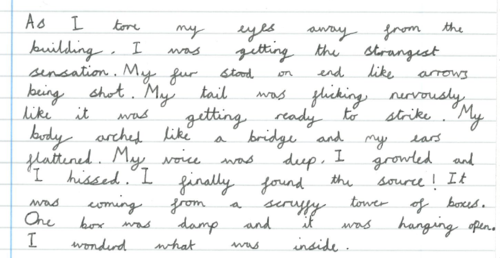 As I tore my eyes away from the
building. I was getting the strangest
sensation. My fur stood on end like arrows
being shot. My tail was flicking nervously
like it was getting ready to strike. My
body arched like a bridge and my ears
flattened. My voice was deep. I growled and
I hissed. I finally found the source! It
was coming from a scruffy tower of boxes.
One box was damp and it was hanging open.
I wonderd what was inside.